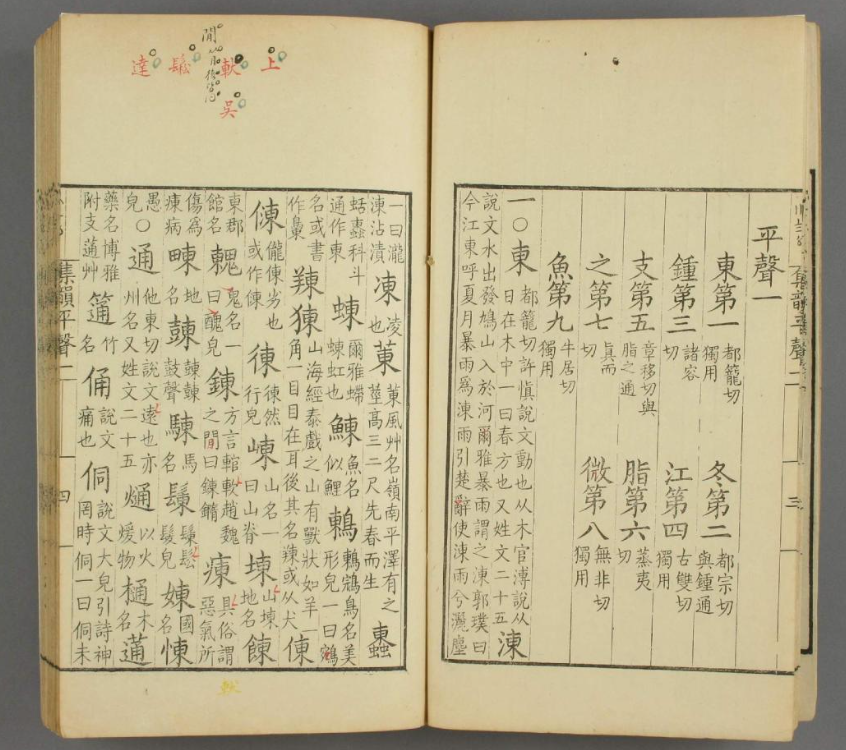 平聲一
東第一 都籠切獨用 冬第二 都宗切與鍾通
鍾第三 諸容切 江第四 古雙切獨用
支第五 章移切與脂之通 脂第六 蒸夷切
之第七 真而切 微第八 無非切獨用
魚第九 牛居切獨用
一〇東 都籠切許慎說文動也从木官溥說从日在木中一曰春方也又姓文二十五 涷
說文水出發鳩山入於河爾雅暴雨謂之涷郭璞曰今江東呼夏月暴雨爲涷雨引楚辭使涷雨兮灑塵
三
上
軑
吳
達
一曰瀧涷沾漬 凍 凌也 菄 菄風艸名嶺南平澤有之莖高三二尺先春而生
科斗通作東 蝀 爾雅螮蝀虹也 鯟 魚名似鯉 鶇 鶇鵍鳥名美形皃一曰鵍
名或書作 山海經泰戲之山有獸狀如羊一角一目目在耳後其名或从犬 倲
儱倲劣也或作 徚 徚然行皃 崠 山名一曰山脊 埬 山埬地名 餗
東郡館名 鬼名一曰醜皃 鍊 方言輨軑趙魏之閒曰鍊鏅 具俗謂惡氣所
傷爲病 地名 鼓聲 馬名 髮皃 國名
愚皃 〇通 他東切說文達也亦州名又姓文二十五 以火煖物 樋 木名 蓪
藥名博雅附支蓪艸 竹名 俑 說文痛也 侗 說文大皃引詩神罔時侗一曰侗未
集韻平聲一
四